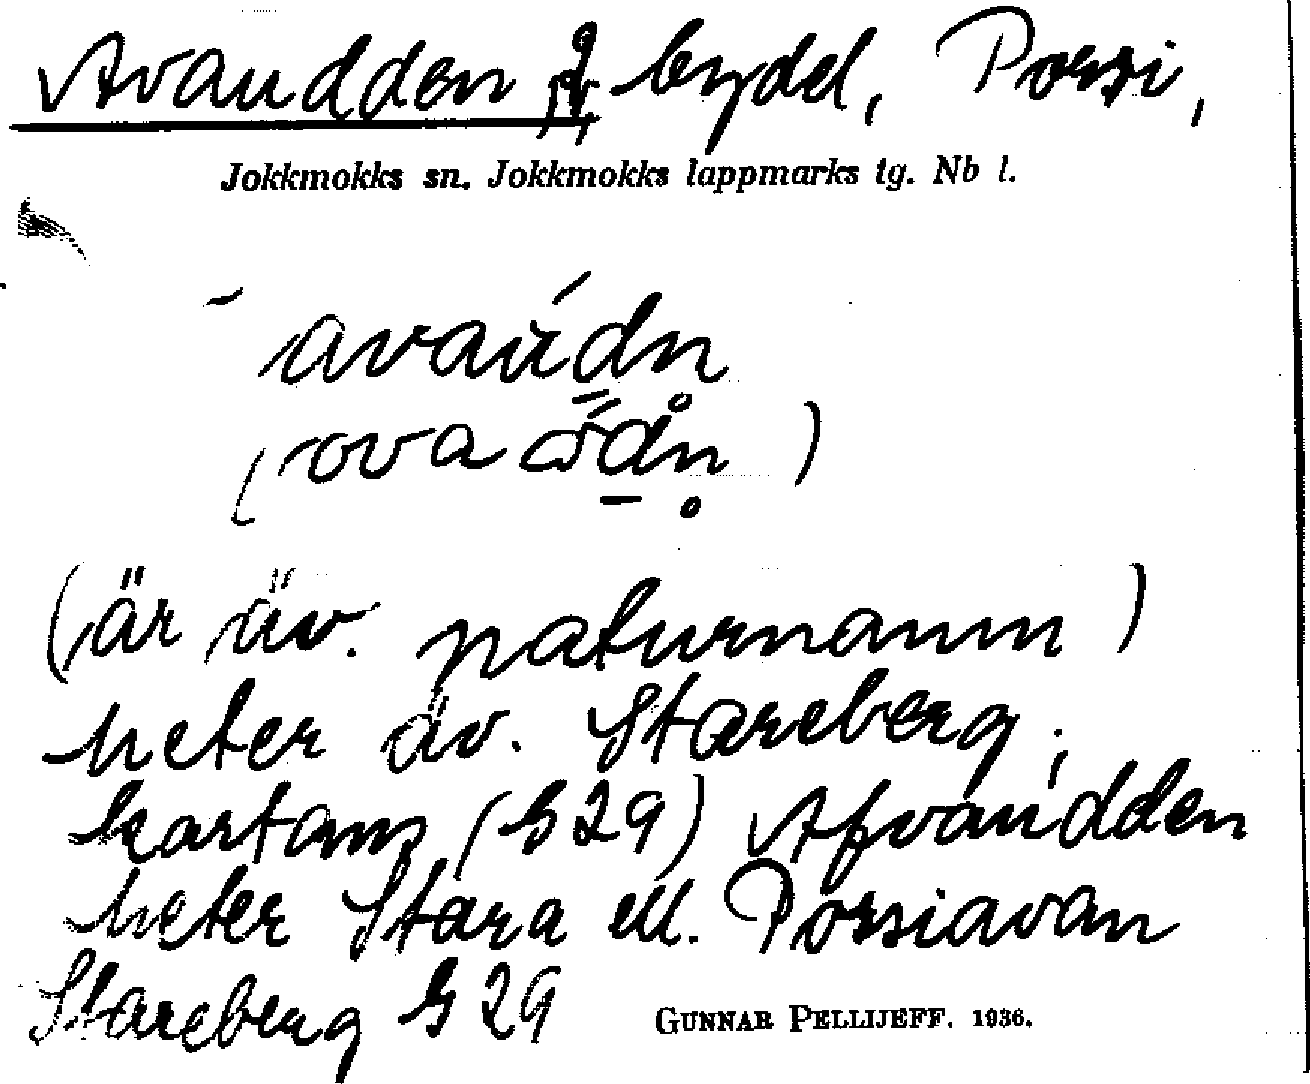 Avaudden, bydel, Porsi,
Jokkmokks sn. Jokkmokks lappmarks tg. Nb l.
(är äv. naturnamn)
heter äv. Stareberg;
kartans (G29) Afvaudden
heter Stara ell. Porsiavan
Stareberg G 29
GUNNAR PELLIJEFF. 1936.